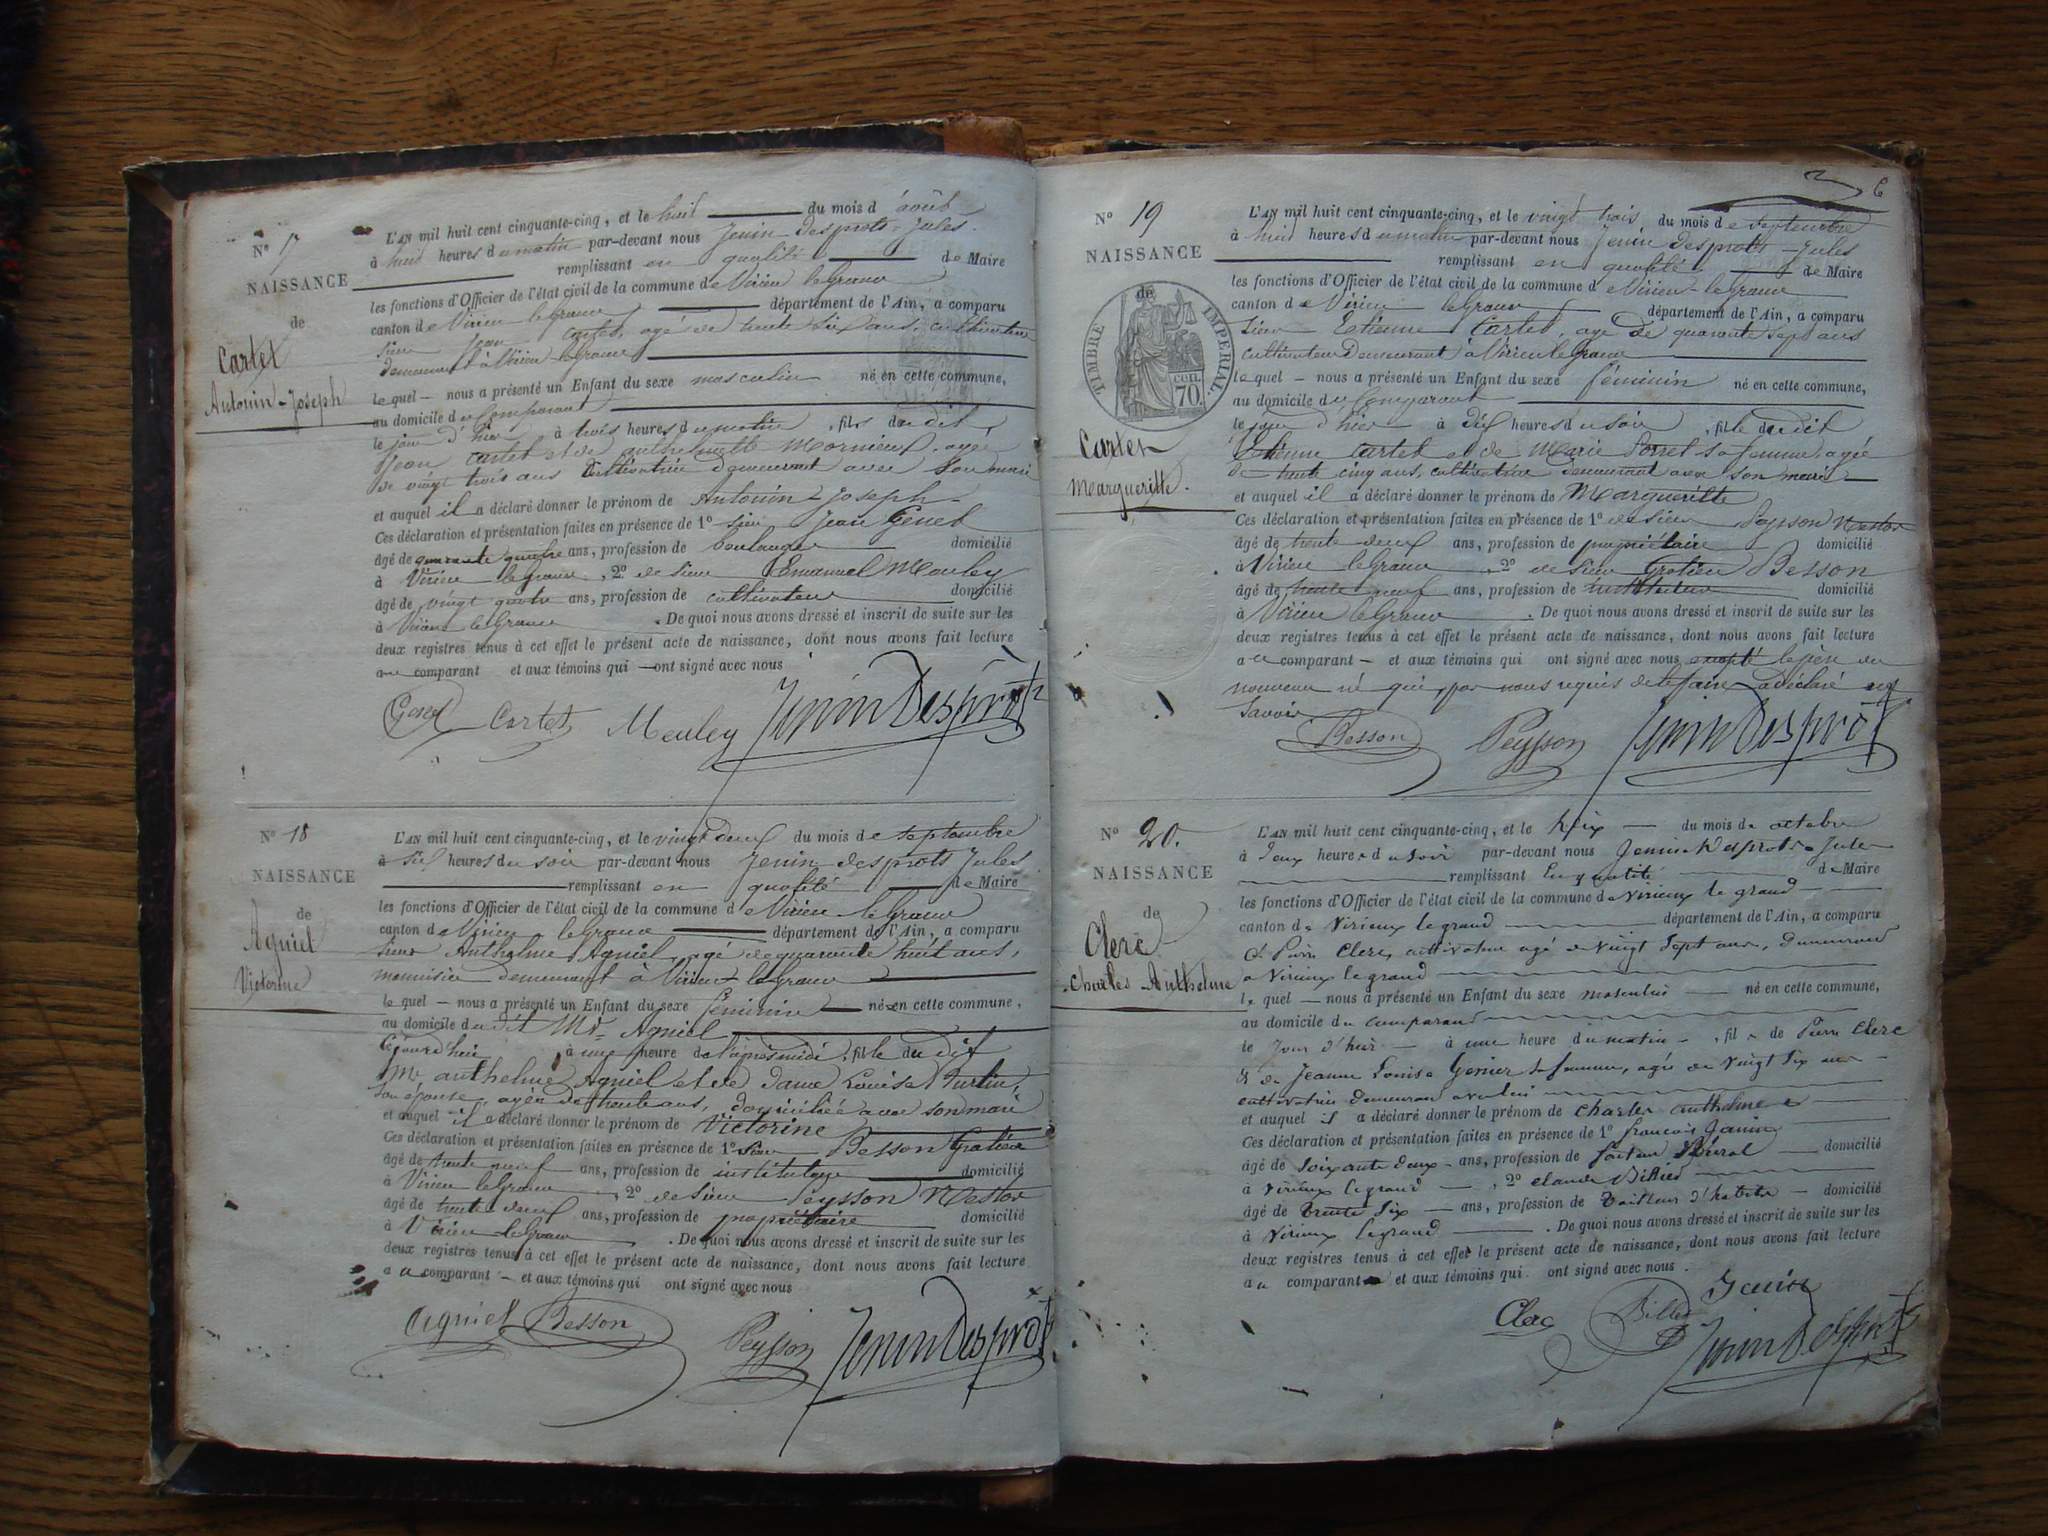 Nº 17
NAISSANCE
de
Cartet
Antouin-Joseph
L'AN mil huit cent cinquante-cinq, et le huit du mois d'août
à huit heures du matin par-devant nous Jenin-Desprots-Jules
remplissant en qualité de Maire
les fonctions d'Officier de l'état civil de la commune de Virieu le Grand
canton de Virieu-le Grand département de l'Ain, a comparu
sieur Jean Cartet, agé de trente six ans, cultivateur
demeurant à Virieu-le Grand
lequel nous a présenté un Enfant du sexe masculin né en cette commune,
au domicile du Comparant
le jour d'hier à trois heures du matin, fils du dit
Jean Cartet et de Anthelmette Mornieux, agée
de vingt trois ans cultivatrice demeurant avec son mari
et auquel il a déclaré donner le prénom de Antouin-Joseph
Ces déclaration et présentation faites en présence de 1º sieur Jean Genet
âgé de quarante quatre ans, profession de boulanger domicilié
à Virieu le Grand, 2º de sieur Emanuel Meuley
âgé de vingt quatre ans, profession de cultivateur domicilié
à Virieu le Grand. De quoi nous avons dressé et inscrit de suite sur les
deux registres tenus à cet effet le présent acte de naissance, dont nous avons fait lecture
au comparant et aux témoins qui ont signé avec nous
Genet Cartet Meuley Jenin Desprots
Nº 18
NAISSANCE
de
Agniel
Victorine
L'AN mil huit cent cinquante-cinq, et le vingt deux du mois de septembre
à six heures du soir par-devant nous Jenin-desprots Jules
remplissant en qualité de Maire
les fonctions d'Officier de l'état civil de la commune de Virieu-le Grand
canton de Virieu le Grand département de l'Ain, a comparu
sieur Anthelme Agniel, agé de quarante huit ans,
menuisier demeurant à Virieu le Grand
lequel nous a présenté un Enfant du sexe féminin né en cette commune,
au domicile du dit Mr Agniel
aujourd'hui à une heure de l'après midi, fille du dit
Mr anthelme Agniel et de dame Louise
son épouse, agée de trente ans, domiciliée avec son mari
et auquel il a déclaré donner le prénom de Victorine
Ces déclaration et présentation faites en présence de 1º sieur Besson Gratien
âgé de trente neuf ans, profession de instituteur domicilié
à Virieu le Grand, 2º de sieur Peysson Nestor
âgé de trente deux ans, profession de propriétaire domicilié
à Virieu-le Grand. De quoi nous avons dressé et inscrit de suite sur les
deux registres tenus à cet effet le présent acte de naissance, dont nous avons fait lecture
au comparant et aux témoins qui ont signé avec nous
Agniel Besson Peysson Jenin Desprots
6
Nº 19
NAISSANCE
de
TIMBRE IMPERIAL.
70 CEN.
Cartet
Margueritte.
L'AN mil huit cent cinquante-cinq, et le vingt trois du mois de septembre
à huit heures du matin par-devant nous Jenin Desprots-Jules
remplissant en qualité de Maire
les fonctions d'Officier de l'état civil de la commune de Virieu-le Grand
canton de Virieu le Grand département de l'Ain, a comparu
sieur Etienne Cartet, agé de quarante sept ans
cultivateur demeurant à Virieu le Grand
lequel nous a présenté un Enfant du sexe féminin né en cette commune,
au domicile du Comparant
le jour d'hier à dix heures du soir, fille du dit
Etienne Cartet et de Marie Porret sa femme, agée
de trente cinq ans, cultivatrice demeurant avec son mari
et auquel il a déclaré donner le prénom de Margueritte
Ces déclaration et présentation faites en présence de 1º de sieur Peysson Nestor
âgé de trente deux ans, profession de propriétaire domicilié
à Virieu le Grand, 2º de sieur Gratien Besson
âgé de trente neuf ans, profession de instituteur domicilié
à Virieu le Grand. De quoi nous avons dressé et inscrit de suite sur les
deux registres tenus à cet effet le présent acte de naissance, dont nous avons fait lecture
au comparant et aux témoins qui ont signé avec nous excepté le père du
nouveau né qui, par nous requis de le faire a déclaré ne
savoir
Besson Peysson Jenin Desprots
Nº 20.
NAISSANCE
de
Clerc
Charles Anthelme
L'AN mil huit cent cinquante-cinq, et le du mois de octobre
à deux heures du soir par-devant nous Jenin Desprots Jules
remplissant en qualité de Maire
les fonctions d'Officier de l'état civil de la commune de Virieux le grand
canton de Virieux le grand département de l'Ain, a comparu
Pierre Clerc, cultivateur agé de vingt sept ans, demeurant
a Virieux le grand
lequel nous a présenté un Enfant du sexe masculin né en cette commune,
au domicile du comparant
le jour d'hier à une heure du matin, fils de Pierre Clerc
& de Jeanne Louise Genier sa femme, agée de vingt six ans
cultivatrice demeurant avec lui
et auquel il a déclaré donner le prénom de charles anthelme
Ces déclaration et présentation faites en présence de 1º françois Janin
âgé de soixante deux ans, profession de facteur Rural domicilié
à Virieux le grand, 2º claude Billiet
âgé de trente six ans, profession de tailleur d'habits domicilié
à Virieux le grand. De quoi nous avons dressé et inscrit de suite sur les
deux registres tenus à cet effet le présent acte de naissance, dont nous avons fait lecture
au comparant et aux témoins qui ont signé avec nous.
Clerc Billiet Janin
Jenin Desprots